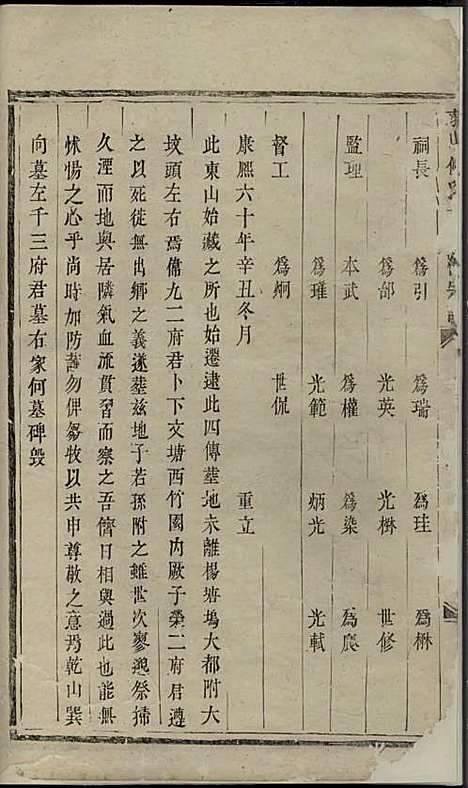 祠長 爲引 爲瑞 爲珪 爲楙
爲部 光英 光楙 世修
監理 本武 爲權 爲染 爲爬
爲璀 光範 炳光 光軾
督工 爲炯 世侃
康熙六十年辛丑冬月 重立
此東山始藏之所也始遷逮此四傳塟地未離楊塘塢大都附大
坟頭左右焉備九二府君卜下交塘西竹園内厥子榮二府君遵
之以死徒無出鄉之義遂塟茲地子若孫附之雖世次寥邈祭掃
久湮而地與居隣氣血流貫習而察之吾儕日相與過此也能無
怵惕之心乎尚時加防護勿俾芻牧以共申尊敬之意焉乾山巽
向墓左千三府君墓右家何墓碑毁